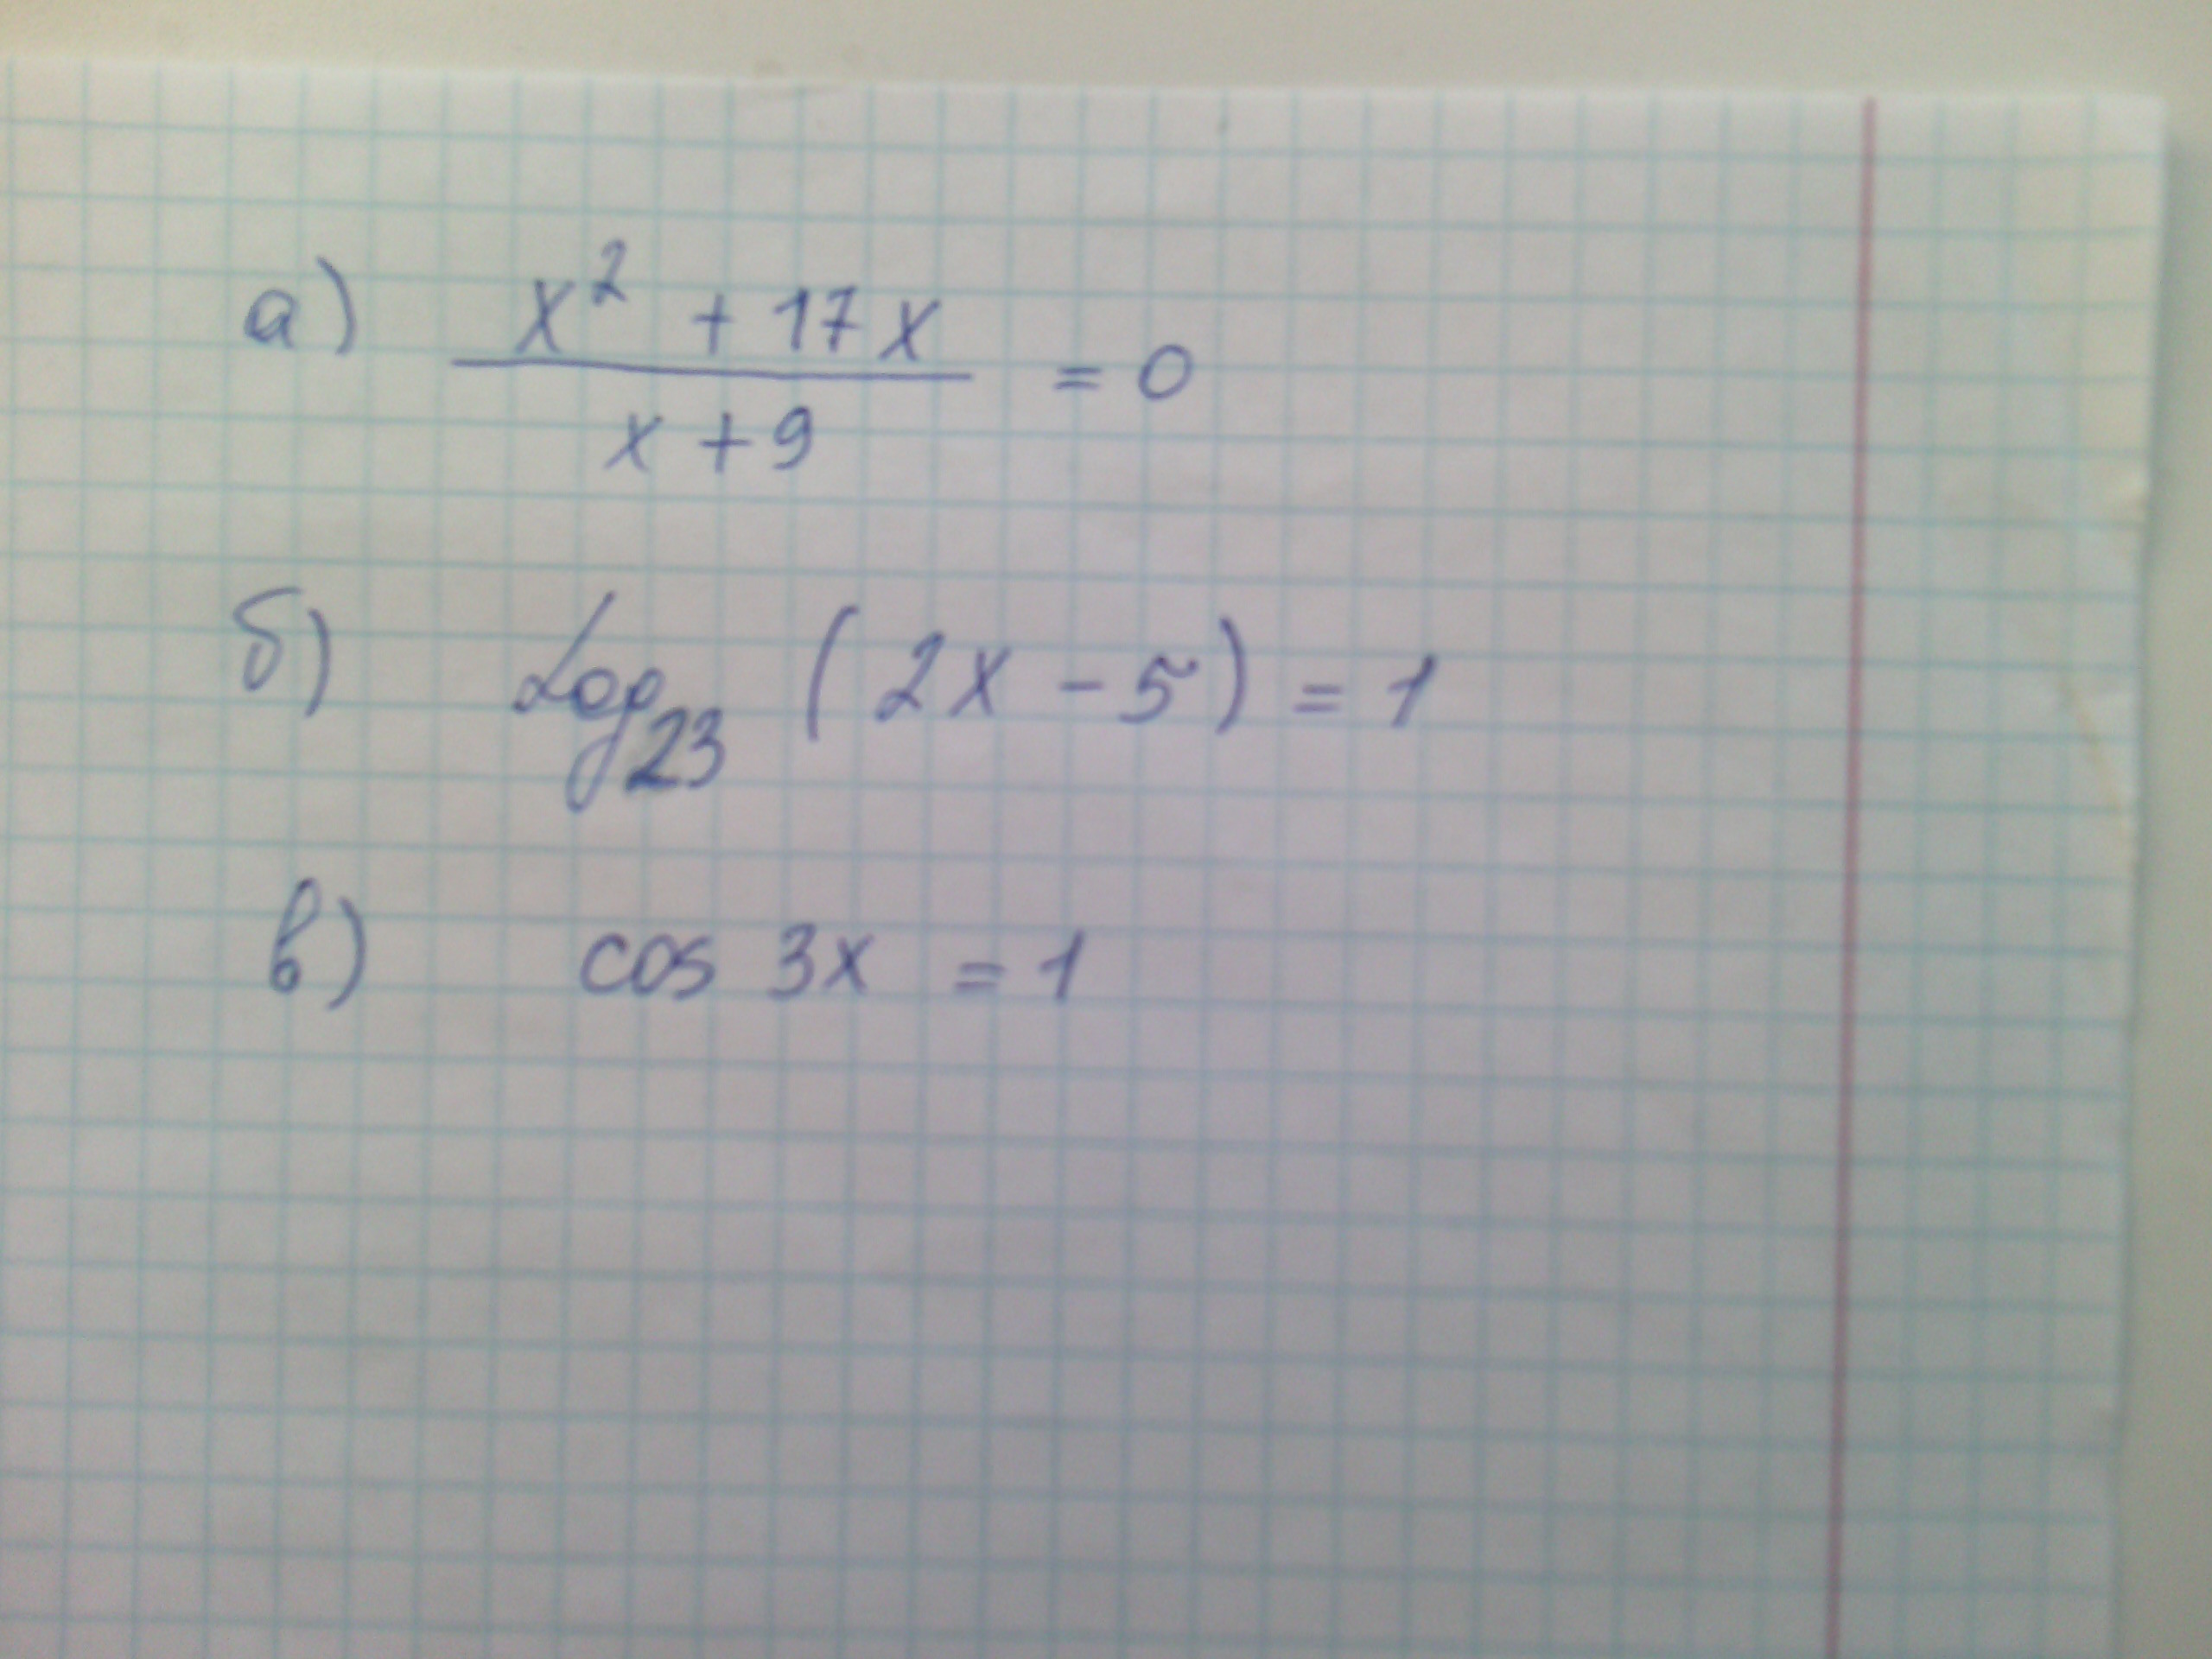 а) (x² + 17x) / (x + 9) = 0
б) log₂₃ (2x - 5) = 1
в) cos 3x = 1